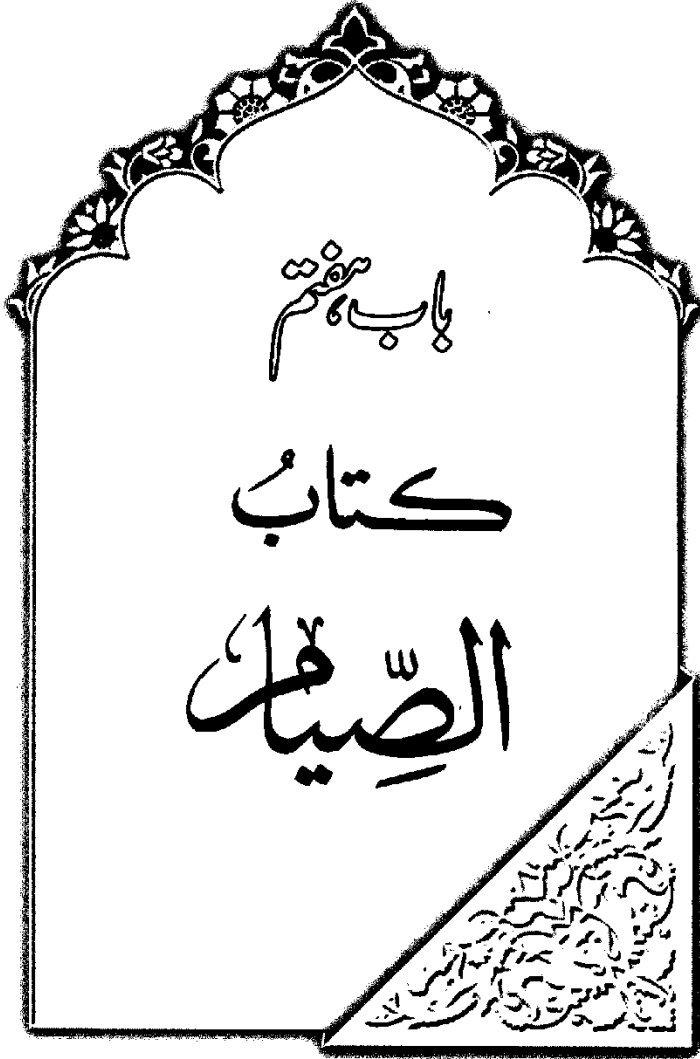 باب ہفتم
کتابُ
الصِّیام